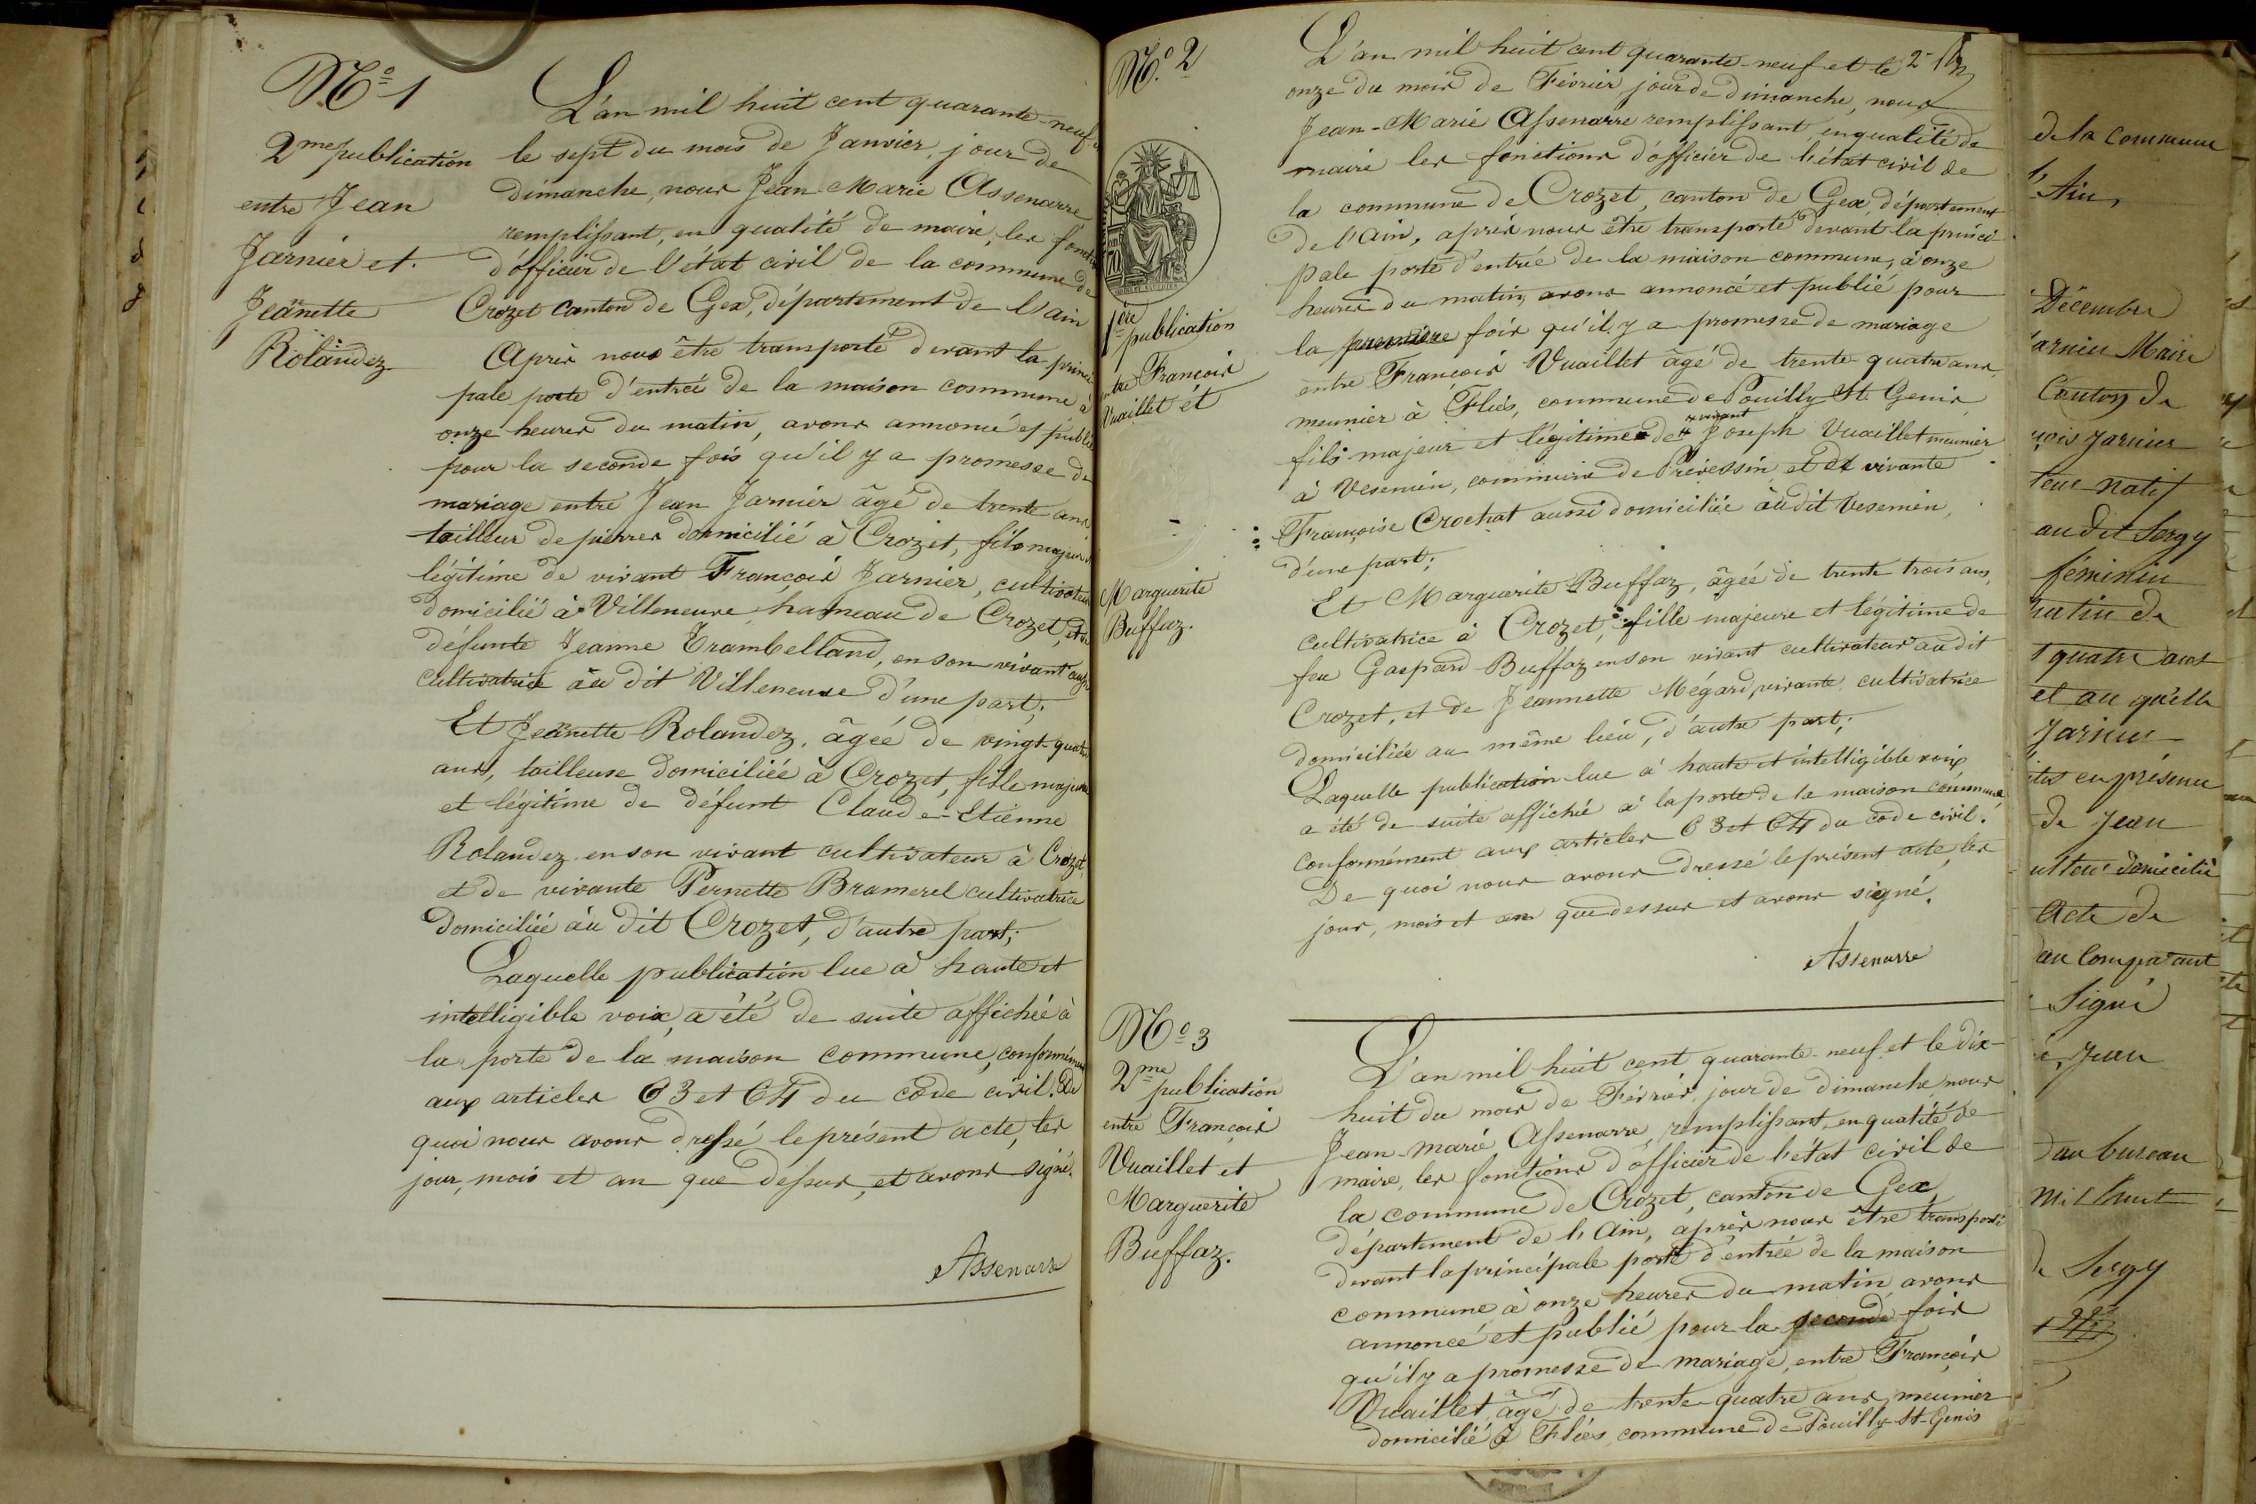 No 1
2me publication
entre Jean
Jarnier et
Jeannette
Rolandez
L'an mil huit cent quarante-neuf
le sept du mois de Janvier, jour de
dimanche, nous Jean-Marie Assenarre
remplissant, en qualité de maire, les
d'officier de l'état civil de la commune de
Crozet canton de Gex, département de l'ain
Après nous être transporté devant la princi
pale porte d'entrée de la maison commune, à
onze heures du matin, avons annoncé et publié
pour la seconde fois qu'il y a promesse de
mariage entre Jean Jarnier âgé de trente ans
tailleur de pierres domicilié à Crozet, fils majeur
légitime de vivant François Jarnier, cultivateur
domicilié à Villeneuve, hameau de Crozet, et
défunte Jeanne Trambelland, en son vivant
cultivatrice au dit Villeneuve d'une part;
Et Jeannette Rolandez, âgée de vingt-quatre
ans, tailleuse domiciliée à Crozet, fille majeure
et légitime de défunt Claude-Etienne
Rolandez en son vivant cultivateur à Crozet,
et de vivante Pernette Bramerel cultivatrice
domiciliée au dit Crozet, d'autre part;
Laquelle publication lue à haute et
intelligible voix, a été de suite affichée à
la porte de la maison commune, conformément
aux articles 63 et 64 du code civil. De
quoi nous avons dressé le présent acte, les
jour, mois et an que dessus, et avons signé.
Assenarre
No. 2
1ère publication
entre François
Vuaillet et
Marguerite
Buffaz.
L'an mil huit cent quarante-neuf et le 2
onze du mois de Février jour de dimanche, nous
Jean-Marie Assenarre remplissant, en qualité de
maire les fonctions d'officier de l'état civil de
la commune de Crozet, canton de Gex, département
de l'ain, après nous être transporté devant la princi
pale porte d'entrée de la maison commune, à onze
heures du matin, avons annoncé et publié pour
la première fois qu'il y a promesse de mariage
entre François Vuaillet âgé de trente-quatre ans,
meunier à Fliés, commune de Pouilly St. Genis,
fils majeur et légitime de vivant Joseph Vuaillet meunier
à Vesenein, commune de Prévessin et de vivante
Françoise Crochat aussi domiciliée audit Vesenein,
d'une part;
Et Marguerite Buffaz, âgée de trente trois ans,
cultivatrice à Crozet, fille majeure et légitime de
feu Gaspard Buffaz en son vivant cultivateur au dit
Crozet, et de Jeannette Mégard, vivante, cultivatrice
domiciliée au même lieu, d'autre part;
Laquelle publication lue à haute et intelligible voix
a été de suite affichée à la porte de la maison commune
conformément aux articles 63 et 64 du code civil.
De quoi nous avons dressé le présent acte, les
jour, mois et an que dessus et avons signé.
Assenarre
No 3
2me publication
entre François
Vuaillet et
Marguerite
Buffaz.
L'an mil huit cent quarante-neuf et le dix-
huit du mois de Février, jour de dimanche, nous
Jean-Marie Assenarre, remplissant, en qualité de
maire, les fonctions d'officier de l'état civil de
la commune de Crozet, canton de Gex,
département de l'Ain, après nous être transporté
devant la principale porte d'entrée de la maison
commune à onze heures du matin, avons
annoncé et publié pour la seconde fois
qu'il y a promesse de mariage, entre François
Vuaillet, âgé de trente-quatre ans, meunier
domicilié à Fliés commune de Pouilly-St-Genis
de la commune
l'Ain,
Décembre
Maire
Canton de
Jarnier
natif
au dit Sergy
féminin
matin de
quatre ans
et au qu'elle
Jarnier
en présence
de Jean
domicilié
Acte de
au Comparant
Signé
Jean
au bureau
mil huit
de Sergy